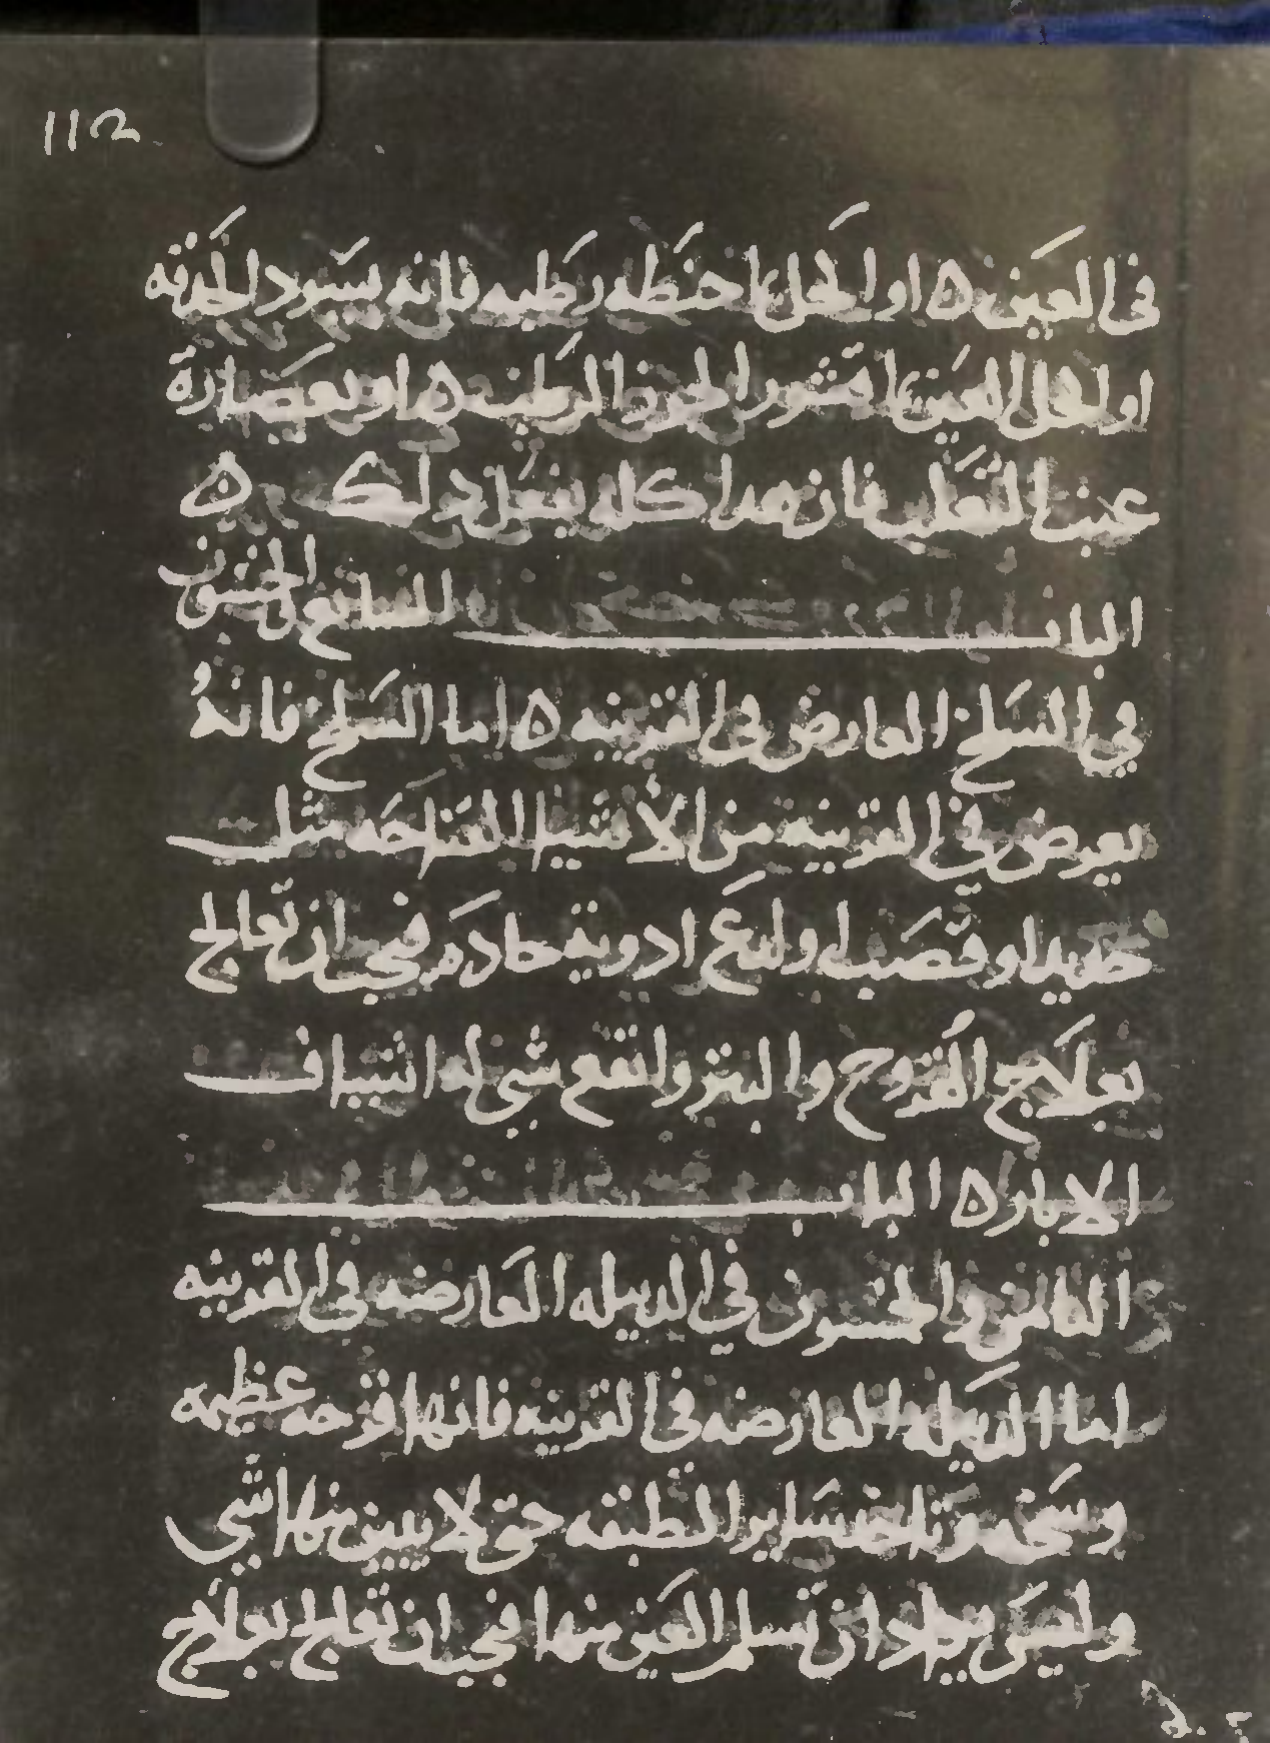 112
في العين ٥ او اكحل بما حنظله رطبه فانه يسود الحدقه
او اكحل العين بما قشور الجوز الرطبه ٥ او بعصارة
عنب الثعلب فان هدا كله يفعل دلك ٥
الباب السابع والخمسون
في السلخ العارض في القرنيه ٥ اما السلخ فانهُ
يعرض في القرنيه من الأشيا القتاحه مثل
حديد او قصب او لدع ادوية حادة فيجب ان تعالج
بعلاج القروح والبثر وانفع شي له اشياف
الابار ٥ الباب
الثامن والخمسون في الدبيله العارضه في القرنيه
اما الدبيله العارضه في القرنيه فانها قرحه عظيمه
وسخه تاخد ساير الطبقه حتى لا يبين منها شي
وليس يكاد ان تسلم العين منها فيجب ان تعالج بعلاج